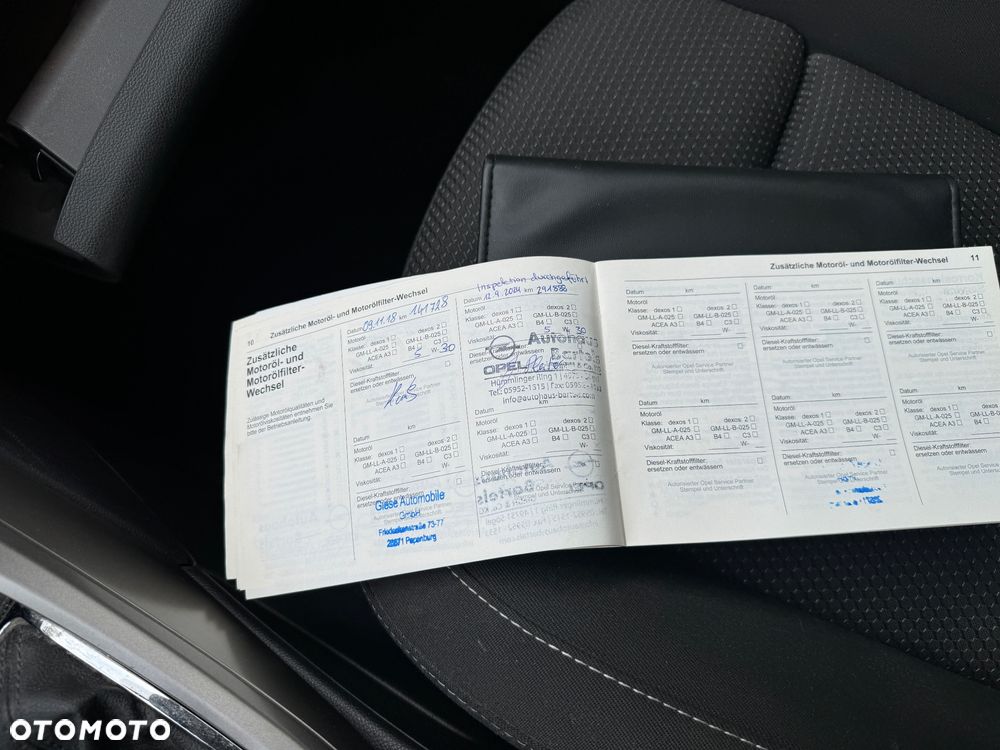 10 Zusätzliche Motoröl- und Motorölfilter-Wechsel
Zusätzliche
Motoröl- und
Motorölfilter-
Wechsel
Zulässige Motorölqualitäten und
Motorölviskositäten entnehmen Sie
bitte der Betriebsanleitung.
Datum 09.11.18 km 141728
Motoröl
Klasse: dexos 1 ☐ dexos 2 ☐
GM-LL-A-025 ☐ GM-LL-B-025 ☐
ACEA A3 ☐ B4 ☐ C3 ☐
Viskosität: 5 W- 30
Diesel-Kraftstofffilter:
ersetzen oder entwässern ☐
Datum km
Motoröl
Klasse: dexos 1 ☐ dexos 2 ☐
GM-LL-A-025 ☐ GM-LL-B-025 ☐
ACEA A3 ☐ B4 ☐ C3 ☐
Viskosität: W-
Diesel-Kraftstofffilter:
ersetzen oder entwässern ☐
Giese Automobile
GmbH
73-77
Papenburg
Inspektion durchgeführt
Datum 12.9.2024 km 291888
Motoröl
Klasse: dexos 1 ☐ dexos 2 ☐
GM-LL-A-025 ☐ GM-LL-B-025 ☐
ACEA A3 ☐ B4 ☐ C3 ☐
Viskosität: 5 W- 30
ersetzen oder entwässern
Autohaus
Bartels
OPEL
Hümmlinger Ring 1
Tel.: 05952-1515 | Fax: 05952-
info@autohaus-bartels.com
Datum km
Motoröl
Klasse: dexos 1 ☐ dexos 2 ☐
GM-LL-A-025 ☐ GM-LL-B-025 ☐
ACEA A3 ☐ B4 ☐ C3 ☐
Viskosität: W-
Diesel-Kraftstofffilter:
ersetzen oder entwässern
Zusätzliche Motoröl- und Motorölfilter-Wechsel 11
Datum km
Motoröl
Klasse: dexos 1 ☐ dexos 2 ☐
GM-LL-A-025 ☐ GM-LL-B-025 ☐
ACEA A3 ☐ B4 ☐ C3 ☐
Viskosität: W-
Diesel-Kraftstofffilter:
ersetzen oder entwässern ☐
Autorisierter Opel Service Partner
Stempel und Unterschrift
Datum km
Motoröl
Klasse: dexos 1 ☐ dexos 2 ☐
GM-LL-A-025 ☐ GM-LL-B-025 ☐
ACEA A3 ☐ B4 ☐ C3 ☐
Viskosität: W-
Diesel-Kraftstofffilter:
ersetzen oder entwässern ☐
Autorisierter Opel Service Partner
Stempel und Unterschrift
Datum km
Motoröl
Klasse: dexos 1 ☐ dexos 2 ☐
GM-LL-A-025 ☐ GM-LL-B-025 ☐
ACEA A3 ☐ B4 ☐ C3 ☐
Viskosität: W-
Diesel-Kraftstofffilter:
ersetzen oder entwässern ☐
Autorisierter Opel Service Partner
Stempel und Unterschrift
Datum km
Motoröl
Klasse: dexos 1 ☐ dexos 2 ☐
GM-LL-A-025 ☐ GM-LL-B-025 ☐
ACEA A3 ☐ B4 ☐ C3 ☐
Viskosität: W-
Diesel-Kraftstofffilter:
ersetzen oder entwässern ☐
Autorisierter Opel Service Partner
Datum
Motoröl
Klasse: dexos 1 ☐
GM-LL-A-025 ☐ GM-LL-B-025
ACEA A3 ☐ B4 ☐
Viskosität:
Diesel-Kraftstofffilter:
ersetzen oder entwässern
Autorisierter Opel Service Partner
Stempel und Unterschrift
Datum km
Motoröl
Klasse: dexos 1 ☐
GM-LL-A-025 ☐
ACEA A3 ☐
Viskosität:
Diesel-Kraftstofffilter:
ersetzen oder entwässern
Autorisierter Opel Service Partner
Stempel und Unterschrift
OTOMOTO